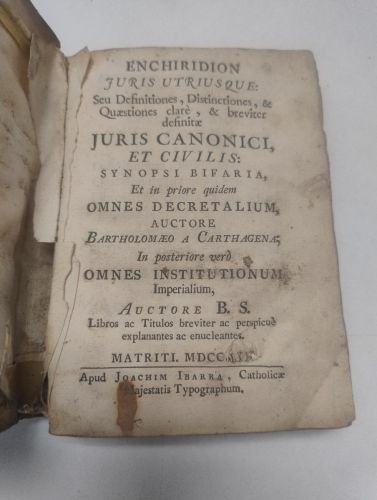 ENCHIRIDION
JURIS UTRIUSQUE:
Seu Definitiones, Distinctiones, &
Quæstiones clarè, & breviter
definitæ
JURIS CANONICI,
ET CIVILIS:
SYNOPSI BIFARIA,
Et in priore quidem
OMNES DECRETALIUM,
AUCTORE
BARTHOLOMÆO A CARTHAGENA;
In posteriore verò
OMNES INSTITUTIONUM
Imperialium,
AUCTORE B. S.
Libros ac Titulos breviter ac perspicuè
explanantes ac enucleantes.
MATRITI.
Apud JOACHIM IBARRA, Catholicæ
Majestatis Typographum.